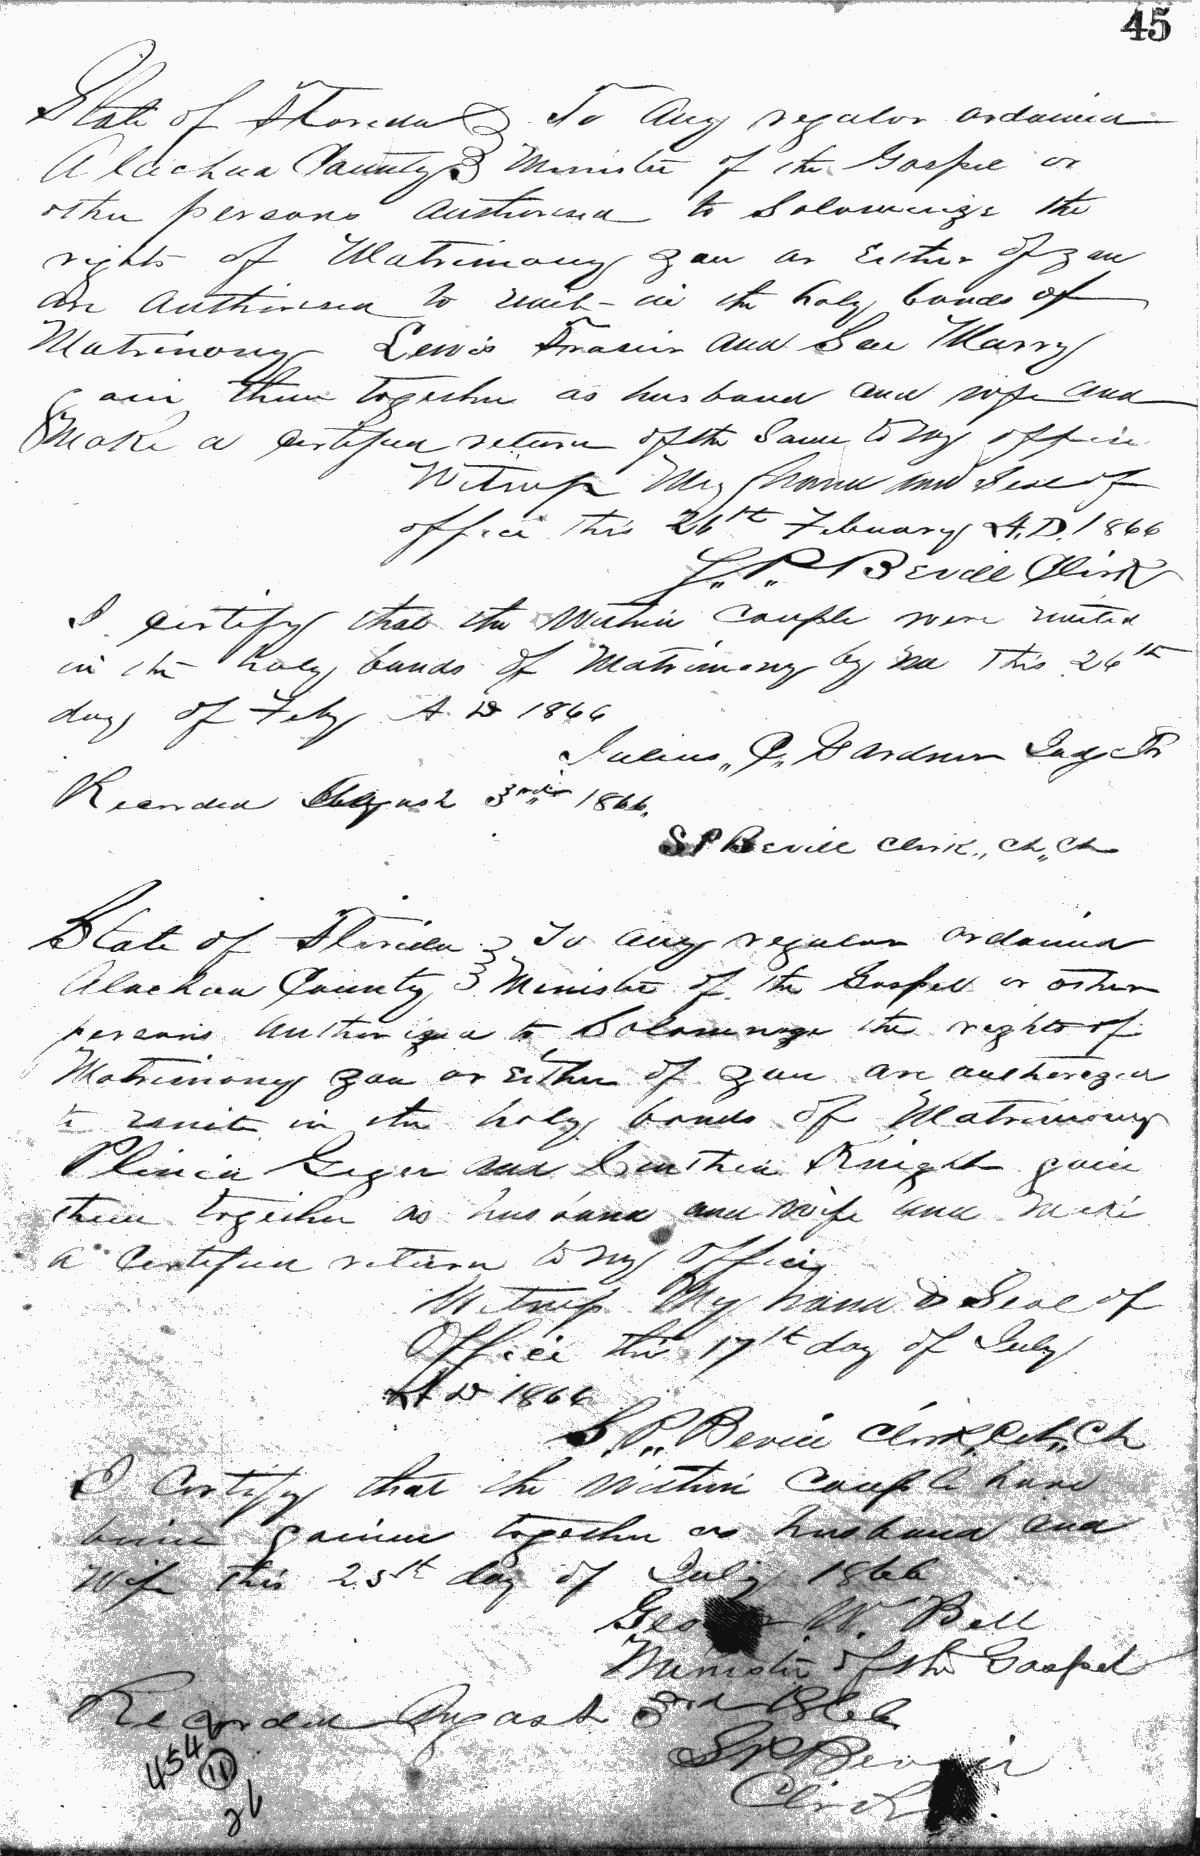 45
State of Florida } To any regular ordained
Alachua County } Minister of the Gospel or
other persons authorised to Solomenize the
rights of Matrimony you or Either of you
are authorised to unite in the holy bonds of
Matrimony Lewis Frasier and Sau Marry
goin them together as husband and wife and
Make a certified return of the Same to my office
Witness My hand and Seal of
office this 26th February A.D. 1866
S.. P.. Bevill Clerk
I certify that the Within Couple were united
in the holy bonds of Matrimony by Me this 26th
day of Feby A D 1866
Julius,, C,, Gardner Judge
Recorded August 3rd 1866.
S P Bevill Clerk,, Ct,, Ct
State of Florida } To any regular ordained
Alachua County } Minister of the Gospel or other
persons authorized to Solomnize the rights of
Matrimony you or Either of you are authorized
to unite in the holy bonds of Matrimony
Plinia Geger and Cinthia Knight goin
them together as husband and wife and Make
a certified return to my office
Witness My hand & Seal of
Office this 17th day of July
A D 1866
S. P.. Bevill Clerk, Ct,, Ct
I Certify that the Within Couple have
bein goined together as husband and
Wife this 25th day of July 1866
George W. Bell
Minister of the Gospel
Recorded August 3rd 1866
S P Bevill
Clerk
454
11
26